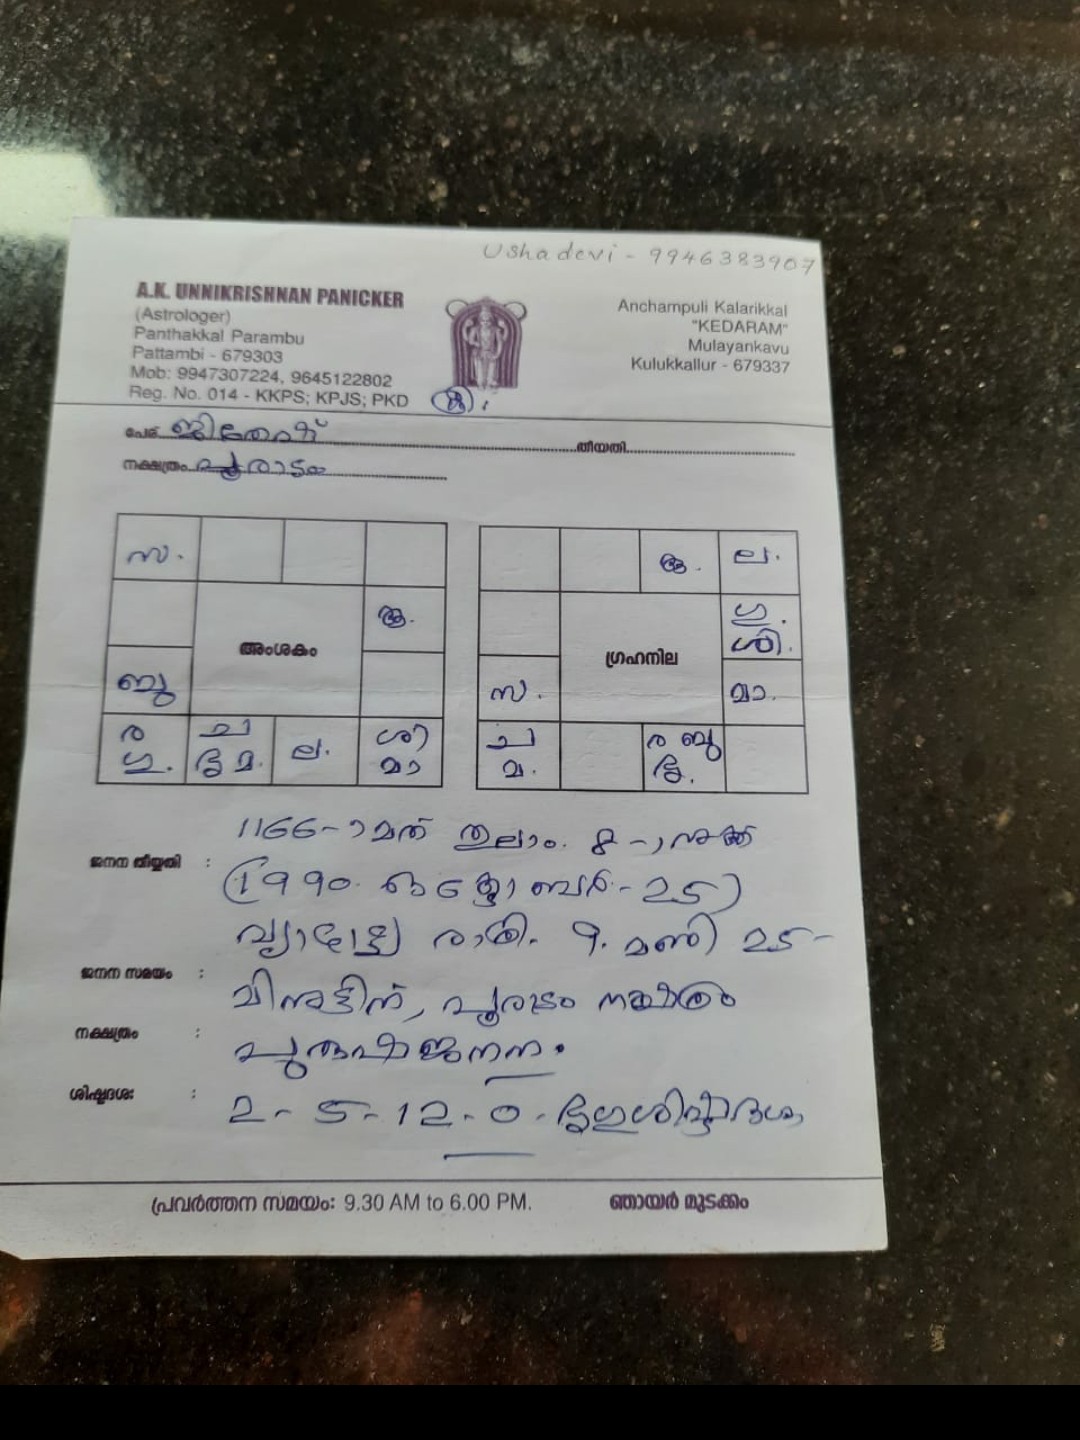 Ushadevi - 9946383907
A.K. UNNIKRISHNAN PANICKER
(Astrologer)
Panthakkal Parambu
Pattambi - 679303
Mob: 9947307224, 9645122802
Reg. No. 014 - KKPS; KPJS; PKD
Anchampuli Kalarikkal
"KEDARAM"
Mulayankavu
Kulukkallur - 679337
ശ്രീ.
പേര് ജിതേഷ് തീയതി
നക്ഷത്രം പൂരാടം
സ.
ആ.
അംശകം
ബു
ര ഗു.
ച ശു മ.
ല.
ശി മാ
ആ. ല.
ഗു. ശി.
ഗ്രഹനില
സ. മാ.
ച മ.
ര ബു ശു.
ജനന തീയ്യതി : 1166-ാമത് തുലാം 8-ാംനുക്ക്
(1990 ഒക്ടോബർ - 25)
വ്യാഴാഴ്ച രാത്രി 9 മണി 25
ജനന സമയം : മിനുട്ടിന്, പൂരാടം നക്ഷത്രം
നക്ഷത്രം : പുരുഷജനനം.
ശിഷ്ടദശ : 2 - 5 - 12 - 0 - ശുക്രശിഷ്ടദശ
പ്രവർത്തന സമയം: 9.30 AM to 6.00 PM. ഞായർ മുടക്കം